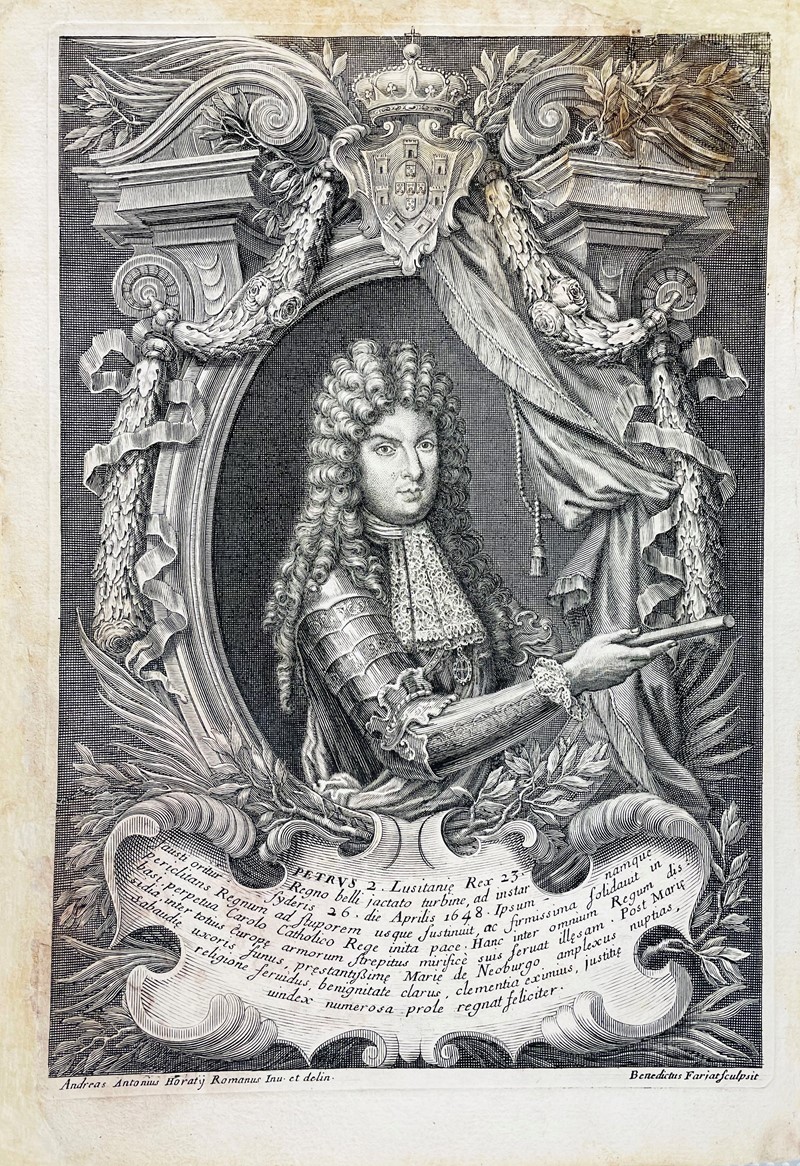 PETRVS 2. Lusitanię Rex 23.
Regno belli jactato turbine, ad instar
fausti oritur syderis 26. die Aprilis 1648. Ipsum namque
periclitans Regnum ad stuporem usque sustinuit, ac firmissima solidauit in
basi, perpetua Carolo Catholico Rege inita pace. Hanc inter omnium Regum dis
sidia, inter totius Europę armorum strepitus mirificè suis seruat illęsam. Post Marię
Sabaudię uxoris funus, pręstantyßimę Marię de Neoburgo amplexus nuptias,
religione feruidus, benignitate clarus, clementia eximius, justitię
uindex numerosa prole regnat feliciter.
Andreas Antonius Horatÿ Romanus Inu. et delin.
Benedictus Fariat sculpsit